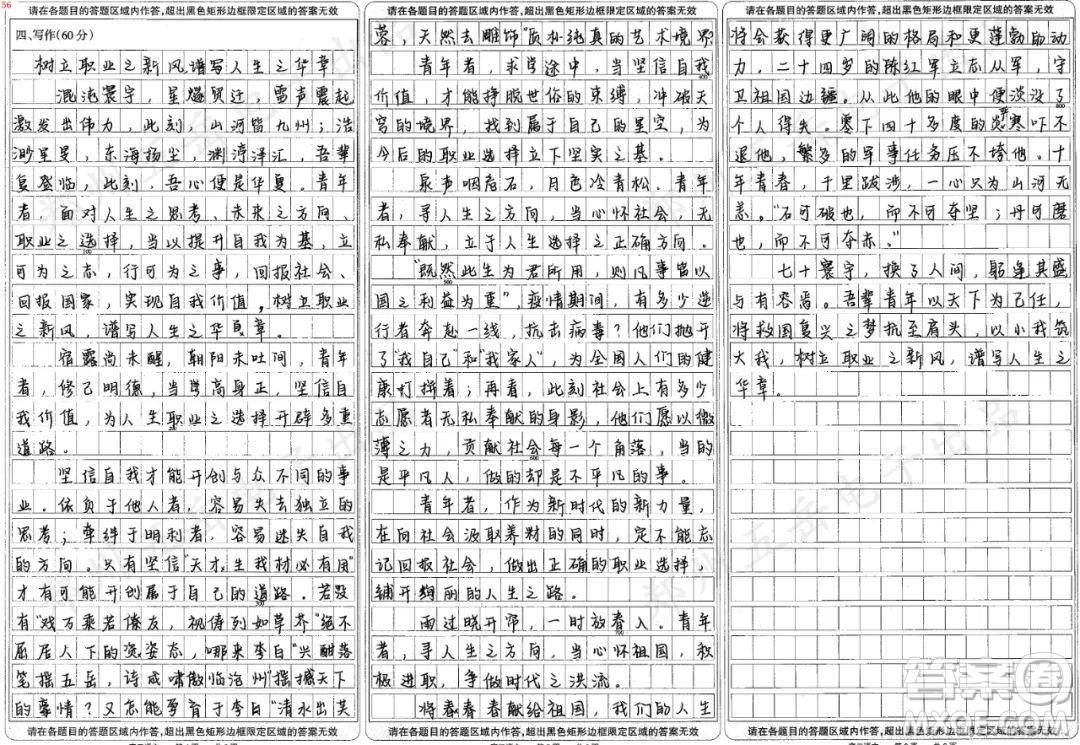 56
请在各题目的答题区域内作答,超出黑色矩形边框限定区域的答案无效
四、写作(60分)
树立职业之新风,谱写人生之华章
混沌寰宇,星燧贸迁,雷声震起
激发出伟力,此刻,山河皆九州;浩
渺星旻,东海扬尘,渊渟泽汇,吾辈
复盛临,此刻,吾心便是华夏。青年
者,面对人生之思考、未来之方向、
职业之选择,当以提升自我为基,立
可为之志,行可为之事,回报社会、
回报国家,实现自我价值。树立职业
之新风,谱写人生之华章。
宿露尚未醒,朝阳未吐间,青年
者,修己明德,当学高身正,坚信自
我价值,为人生职业之选择开辟多重
道路。
坚信自我才能开创与众不同的事
业。依负于他人者,容易失去独立的
思考;牵绊于明利者,容易迷失自我
的方向。只有坚信"天才生我材必有用"
才有可能开创属于自己的道路。若毁
有"戏万乘若僚友,视俦列如草芥"绝不
屈居人下的姿态,哪来李白"兴酣落
笔摇五岳,诗成啸傲临沧州"摇撼天下
的豪情?又怎能孕育于李白"清水出芙
请在各题目的答题区域内作答,超出黑色矩形边框限定区域的答案无效
请在各题目的答题区域内作答,超出黑色矩形边框限定区域的答案无效
蓉,天然去雕饰"质朴纯真的艺术境界
青年者,求学途中,当坚信自我
价值,才能挣脱世俗的束缚,冲破天
穹的境界,找到属于自己的星空,为
今后的职业选择立下坚实之基。
泉声咽危石,月色冷青松。青年
者,寻人生之方向,当心怀社会,无
私奉献,立于人生选择之正确方向。
"既然此生为君所用,则凡事皆以
国之利益为重",疫情期间,有多少逆
行者奔赴一线,抗击病毒?他们抛开
了"我自己"和"我家人",为全国人们的健
康打拼着;再看,此刻社会上有多少
志愿者无私奉献的身影,他们愿以微
薄之力,贡献社会每一个角落,当的
是平凡人,做的却是不平凡的事。
青年者,作为新时代的新力量,
在向社会汲取养料的同时,定不能忘
记回报社会,做出正确的职业选择,
铺开绚丽的人生之路。
雨过晓开帘,一时放春入。青年
者,寻人生之方向,当心怀祖国,积
极进取,争做时代之洪流。
将春春春献给祖国,我们的人生
请在各题目的答题区域内作答,超出黑色矩形边框限定区域的答案无效
请在各题目的答题区域内作答,超出黑色矩形边框限定区域的答案无效
将会获得更广阔的格局和更蓬勃的动
力。二十四岁的陈红军立志从军,守
卫祖国边疆。从此他的眼中便淡没了
个人得失。零下四十多度的严寒吓不
退他,繁多的军事任务压不垮他。十
年青春,千里跋涉,一心只为山河无
恙。"石可破也,而不可夺坚;丹可磨
也,而不可夺赤。"
七十寰宇,换了人间,躬逢其盛
与有容焉。吾辈青年以天下为己任,
将救国复兴之梦抗至肩头,以小我筑
大我,树立职业之新风,谱写人生之
华章。
请在各题目的答题区域内作答,超出黑色矩形边框限定区域的答案无效
答案圈
MXQE.COM